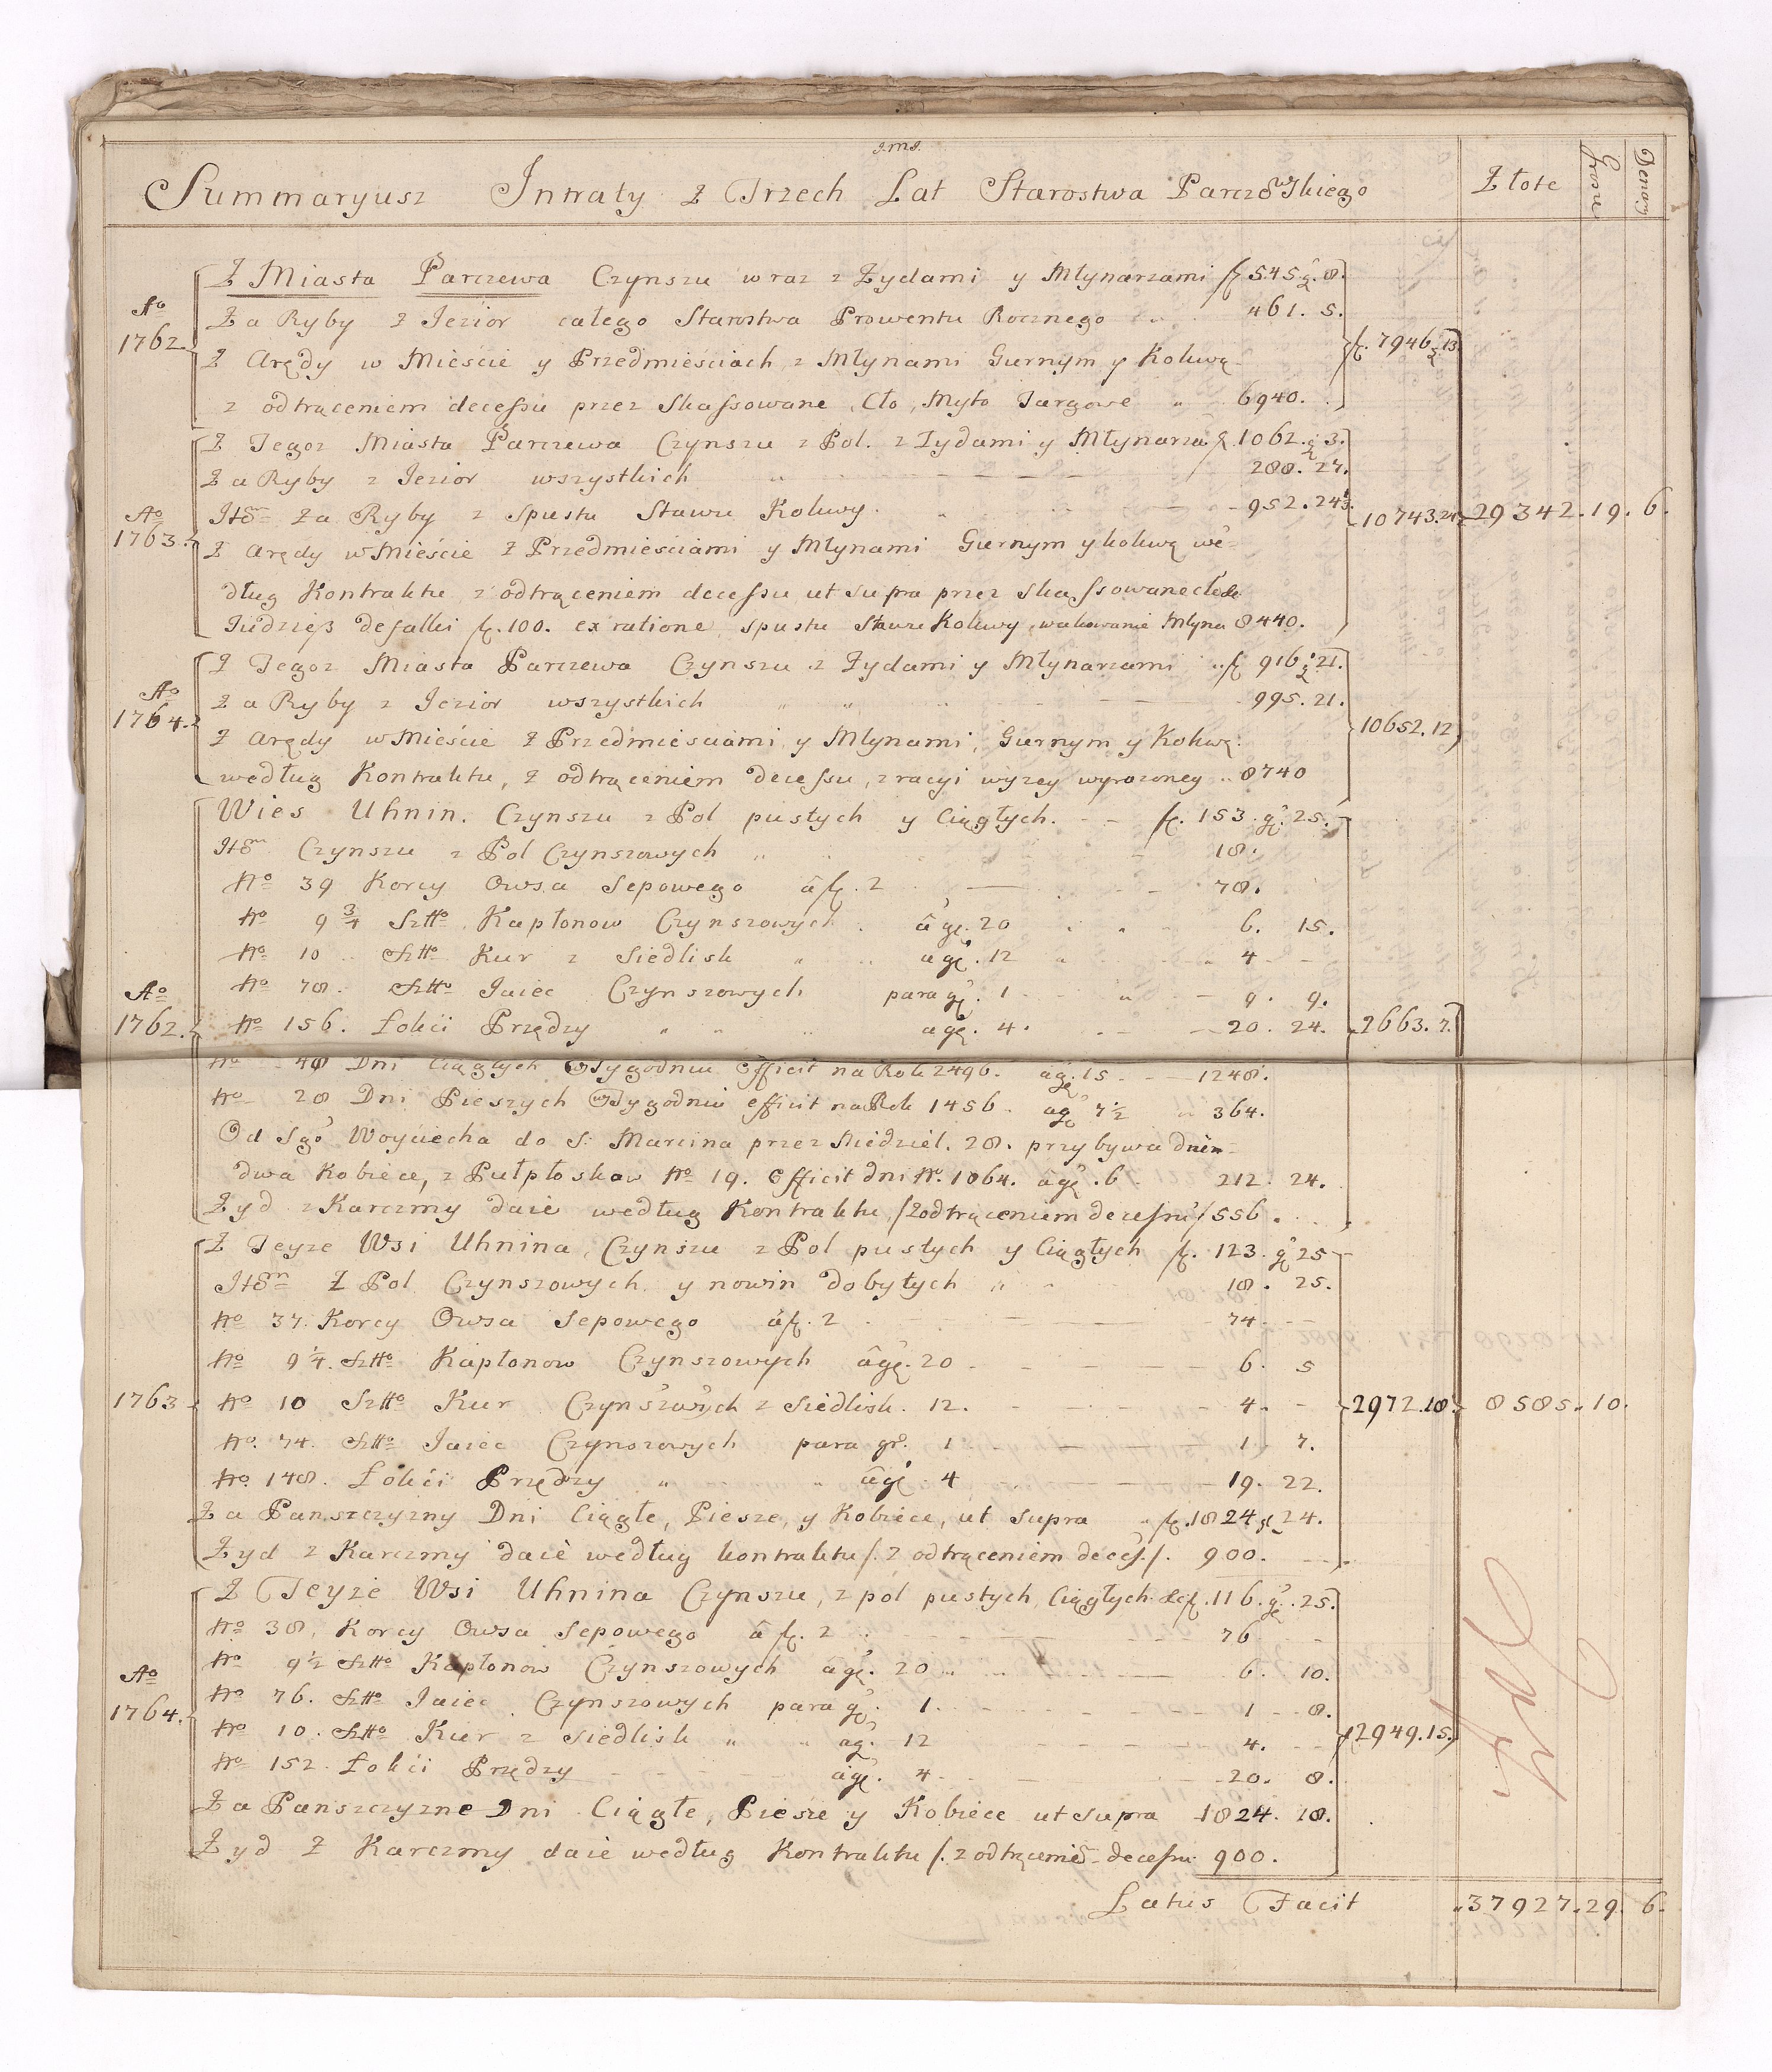 J.M.J.
Summaryusz Intraty z Trzech Lat Starostwa Parczowskiego Złote Grosze Denary
Z Miasta Parczewa Czynszu wraz z Żydami y Młynarzami fl 545 g. 8.
Aº 1762
Za Ryby z Jezior całego Starostwa Prowentu Rocznego 461. 5.
Z Arędy w Mieście y Przedmieściach z Młynami Gurnym y Kolwą
fl. 7946 g. 13
z odtrąceniem decessu przez skassowane Cło, Myto Targowe 6940.
Z Tegoz Miasta Parczewa Czynszu z Pol. z Żydami y Młynarza fl. 1062. g. 3.
Za Ryby z Jezior wszystkich 288. 27.
Aº 1763.
Itdm Za Ryby z Spustu Stawu Kolwy. 952. 24
10743. 24 29342. 19. 6.
Z Arędy w Mieście Z Przedmieściami y Młynami Gurnym y kolwą we-
dług Kontraktu z odtrąceniem decessu ut supra przez skassowane cło &
Tudzież defalki fl. 100. ex ratione spustu Stawu Kolwy, wakowanie Młyna 8440.
Z Tegoz Miasta Parczewa Czynszu z Żydami y Młynarzami fl 916 g 21.
Aº 1764.
Za Ryby z Jezior wszystkich 995. 21.
Z Arędy w Mieście Z Przedmiesciami y Młynami, Gurnym y Kolwą.
10652. 12
według Kontraktu, z odtrąceniem decessu, z racyi wyzey wyrazoney 8740
Wies Uhnin. Czynszu z Pol pustych y Ciągłych. fl. 153. g. 25.
Itdm Czynszu z Pol Czynszowych 18.
Nº 39 Korcy Owsa Sepowego â fl. 2 78.
Nº 9 3/4 Sztº Kapłonow Czynszowych â g. 20 6. 15.
Nº 10 Sztº Kur z Siedlisk â g. 12 4
Aº 1762.
Nº 78. Sztº Jaiec Czynszowych para g. 1 9. 9.
Nº 156. Łokci Przędzy â g. 4. 20. 24. 2663. 7.
Nº 48 Dni Ciągłych w Tygodniu efficit na Rok 2496. â g. 15 1248.
Nº 28 Dni Pieszych w Tygodniu efficit na Rok 1456 â g. 7½ 364.
Od Sgº Woyciecha do S. Marcina przez Niedziel. 28. przybywa dnin
dwa Kobiece, z Pułpłoskow Nº 19. Efficit dni Nº. 1064. â g. 6 212. 24.
Żyd z Karczmy daie według Kontraktu /z odtrąceniem decessu/ 556.
Z Teyze Wsi Uhnina, Czynszu z Pol pustych y Ciągłych fl. 123. g. 25
Itdm Z Pol Czynszowych y nowin dobytych 18. 25.
Nº 37. Korcy Owsa Sepowego â fl. 2 74
Nº 9¼. Sztº Kapłonow Czynszowych â g. 20 6. 5
1763
Nº 10 Sztº Kur Czynszowych z Siedlisk. 12. 4.
2972. 18 8585. 10.
Nº. 74. Sztº Jaiec Czynszowych para gr. 1 1. 7.
Nº. 148. Łokci Przędzy â g. 4 19. 22.
Za Panszczyzny Dni Ciągłe, Piesze, y Kobiece, ut supra fl. 1824 g 24.
Żyd z Karczmy daie według kontraktu /. z odtrąceniem deces. /. 900.
Z Teyże Wsi Uhnina Czynszu, z pol pustych, Ciągłych &c fl. 116. g. 25.
Nº 38. Korcy Owsa Sepowego â fl. 2 76
Nº 9½ Sztº Kapłonow Czynszowych â g. 20 6. 10.
Aº 1764.
Nº 76. Sztº Jaiec Czynszowych para g. 1. 1 8.
Nº 10. Sztº Kur z Siedlisk â g. 12 4.
2949. 15.
Nº 152. Łokci Przędzy â g. 4 20. 8.
Za Panszczyzne Dni Ciągłe, Piesze y Kobiece ut supra 1824. 18.
Żyd Z Karczmy daie według Kontraktu /. z odtrącenie decessu 900.
Latus Facit 37927. 29. 6.